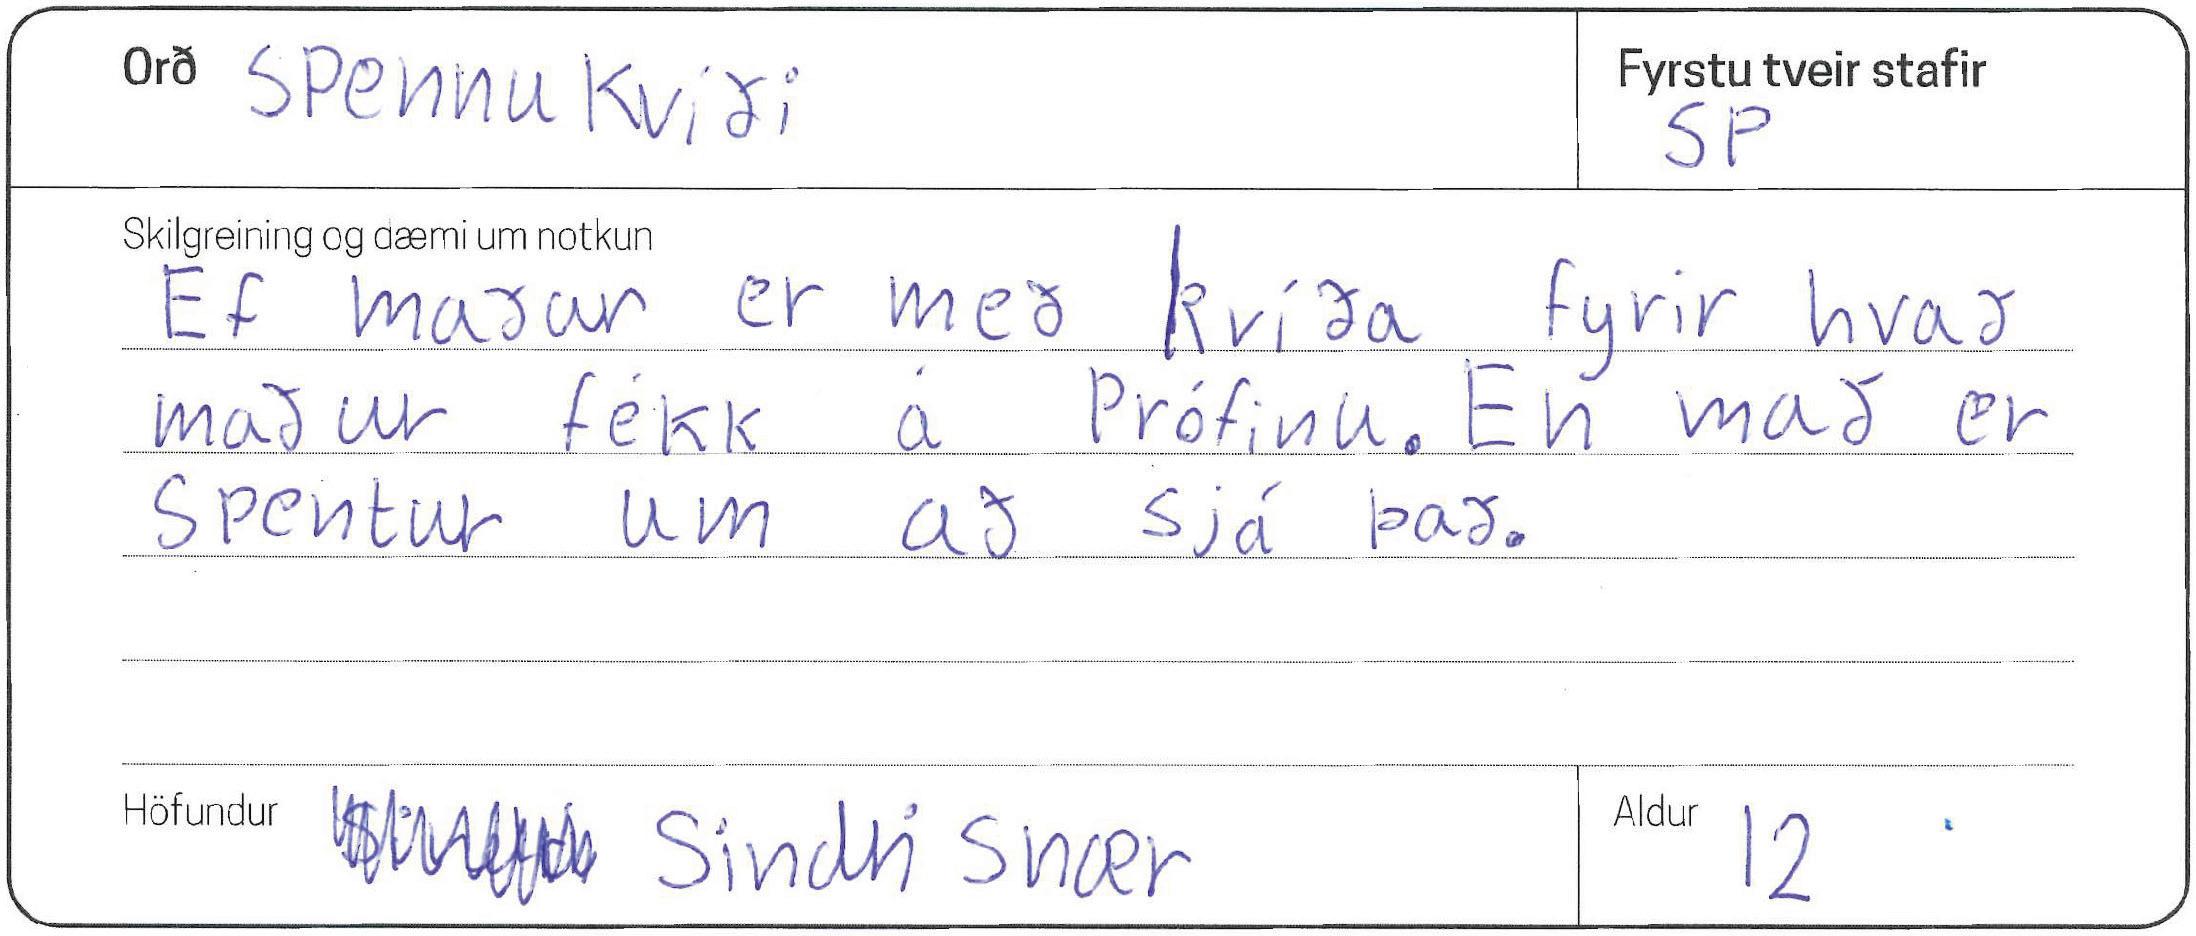 Orð spennukvíði
Fyrstu tveir stafir
SP
Skilgreining og dæmi um notkun
Ef maðar er með kvíða fyrir hvað
maður fékk á Prófinu. En mað er
spentur um að sjá það.
Höfundur Sindri Snær
Aldur 12